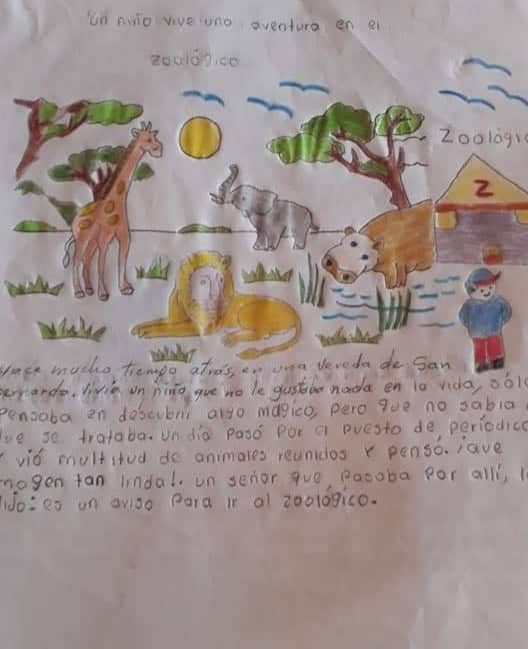 Un niño vive uno aventura en el
zoológico
Zoológico
Z
Hace mucho tiempo atrás, en una Vereda de San
bernardo. Vivía un niño que no le gustaba nada en la vida, sólo
Pensaba en descubrir algo mágico, pero que no sabía
que se trataba. un día Pasó Por el puesto de periódico
y vió multitud de animales reunidos y pensó. ¡ave
imagen tan linda!. un señor que Pasaba Por allí, l
dijo: es un aviso Para ir al zoológico.